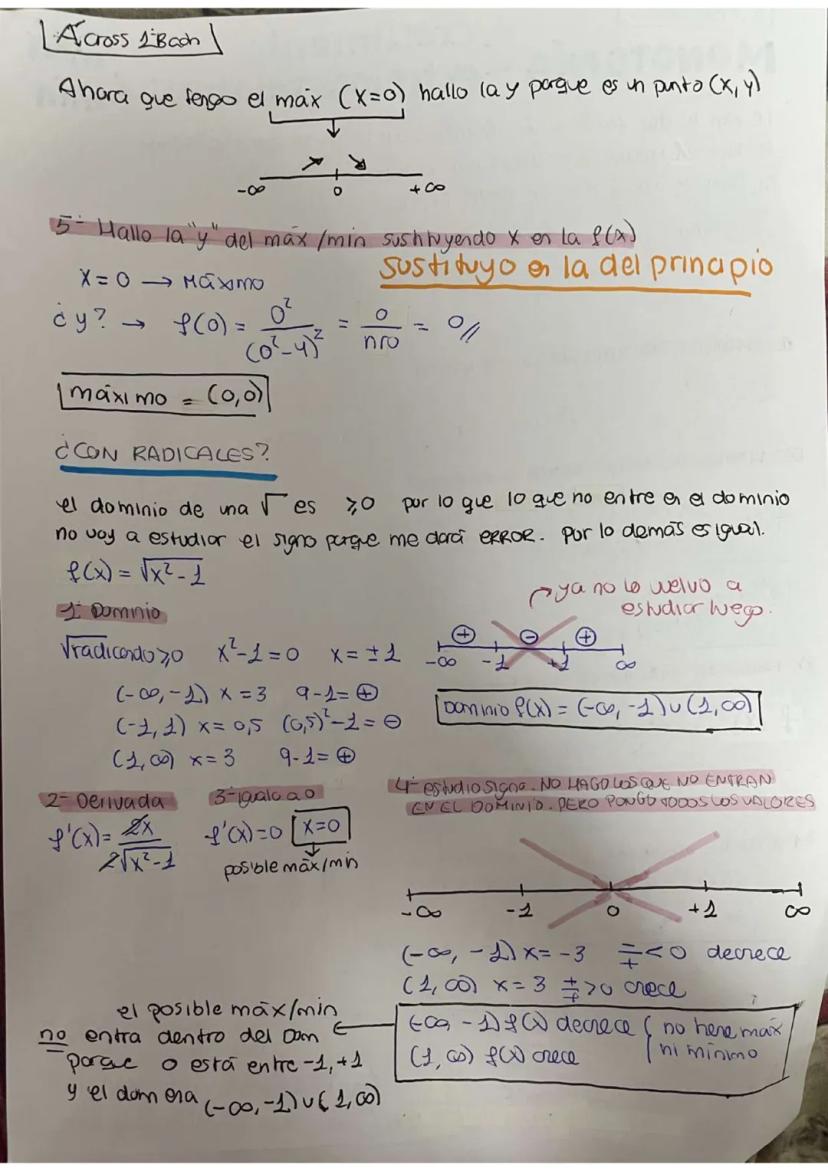 Across 1º Bach
Ahora que tengo el máx (x=0) hallo la y porque es un punto (x,y)
-∞ 0 +∞
5º- Hallo la "y" del máx/min sustituyendo x en la f(x)
sustituyo en la del principio
x=0 → Máximo
¿y? → f(0) = 0²/(0²-4)² = 0/nro = 0//
máximo = (0,0)
¿CON RADICALES?
el dominio de una √ es ≥0 por lo que lo que no entre en el dominio
no voy a estudiar el signo porque me dará ERROR. Por lo demás es igual.
f(x) = √x²-1
→ ya no lo vuelvo a
estudiar luego.
1º Dominio
√radicando≥0 x²-1=0 x=±1
⊕ ⊖ ⊕
-∞ -1 +1 ∞
(-∞,-1) x=3 9-1=⊕
(-1,1) x=0,5 (0,5)²-1=⊖
(1,∞) x=3 9-1=⊕
Dominio f(x) = (-∞,-1)∪(1,∞)
2º Derivada
f'(x)= 2x/2√x²-1
3º igualo a 0
f'(x)=0 x=0
posible máx/min
4º- estudio signo. NO HAGO LOS QUE NO ENTRAN
EN EL DOMINIO. PERO PONGO TODOS LOS VALORES
-∞ -1 0 +1 ∞
(-∞,-1) x=-3 -/+ <0 decrece
(1,∞) x=3 +/+ >0 crece
(-∞ -1) f(x) decrece { no tiene máx
(1,∞) f(x) crece ni mínimo
el posible máx/min
no entra dentro del Dom
porque 0 está entre -1,+1
y el dom era (-∞,-1)∪(1,∞)